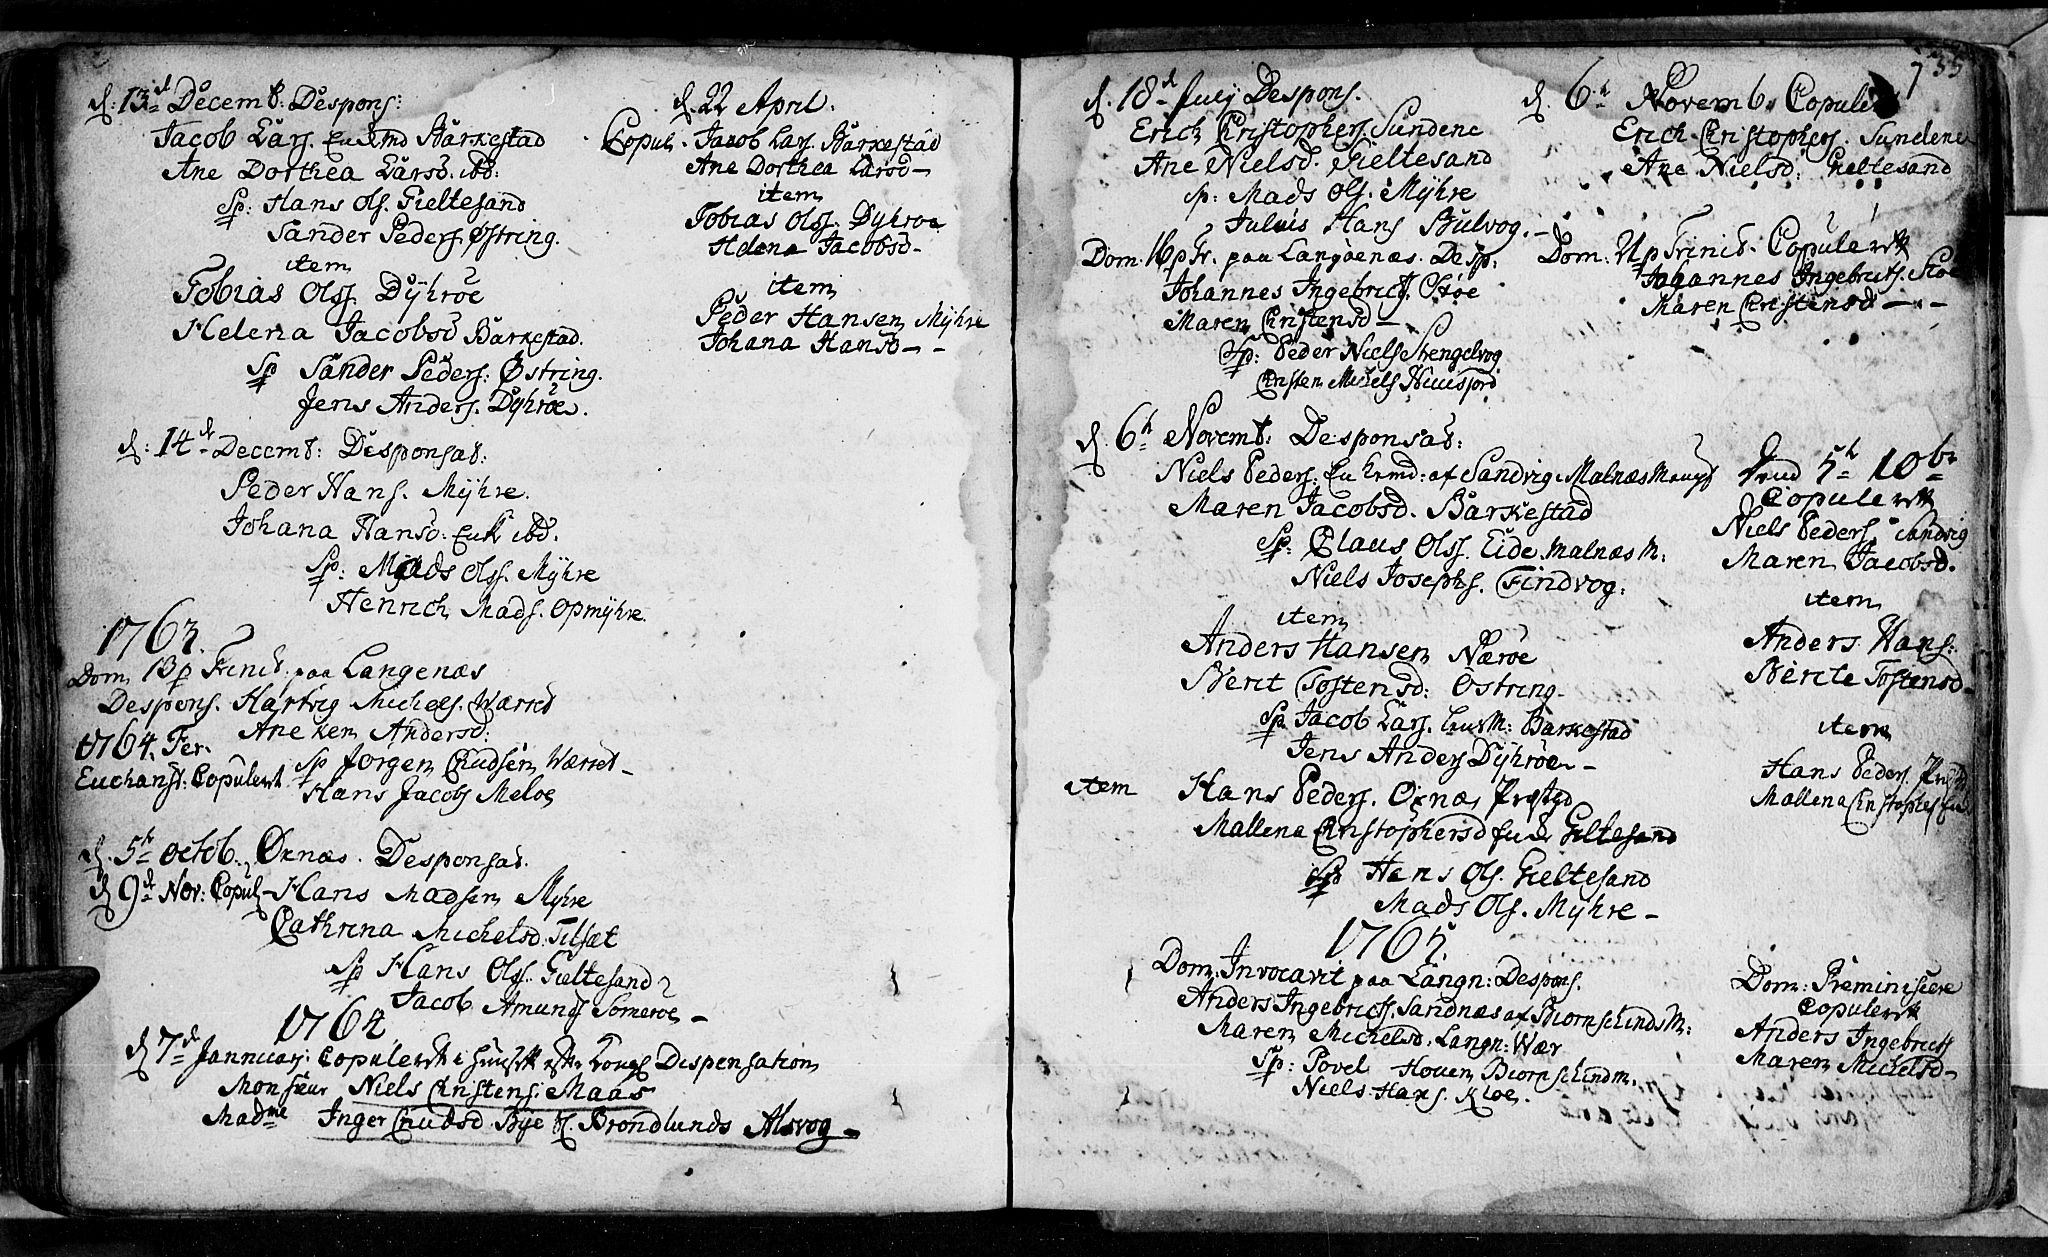 d. 13d Decemb: Despons:
Jacob Lars. Enkemd Barkestad
Ane Dorthea Larsd. ibd:
Sp: Hans Ols. Gieltesand
Sander Peders. Østring.
item
Tobias Olss. Dyhrøe
Helena Jacobsd Barkestad.
Sp Sander Peders: Østring.
Jens Anders. Dyhröe.
d: 14d Decemb: Desponsat:
Peder Hans. Myhre.
Johana Hansd: Enk ibd.
Sp: Mads Olss. Myhre
Henrich Mads. Opmyhre.
1763.
Dom 13 p Trinit. paa Langenæs
Despons. Hartvig Michels. Wærret
Aneken Andersd:
1764. Fer.
Sp Jørgen Chudsen Wærret -
Eucharist. Copulert
Hans Jacobs Meloe
d. 5h octob. Øxnæs. Desponsat.
d 9d Nov: Copul - Hans Madsen Myhre
Cathrina Michelsd. Tilsæt
Sp Hans Olss. Gieltesand
Jacob Amunds Someroe -
1764
d 7d Jannuar: Copulert i Huuset efter Kongl Dispensation
Monsieur Niels Christens: Maas
Madme Inger Chudsd. Bye Sl. Brondlunds Alsvog -
d. 22 April.
Copul. Jacob Lars Barkestad
Ane Dorthea Larsd -
item
Tobias Olss. Dyhroe
Helena Jacobsd -
item
Peder Hansen Myhre
Johana Hansd - -
735
d. 18d July Despons.
Erich Christophers. Sundene
Ane Nielsd. Gieltesand
Sp: Mads Ols. Myhre
Julius Hans Bulvog. -
Dom. 16 p Tr. paa Langøenæs. Desp:
Johannes Ingebrict. Skoe
Maren Christensd -
Sp: Peder Niels Stengelvog
Christen Michels Huusfiord
d. 6h Novemb: Desponsat:
Niels Peders: Enkemd: af Sandvig Malnæs Mengh
Maren Jacobsd. Barkestad
Sp: Claus Olss. Eide Malnæs M:
Niels Josephs. Findvog:
item
Anders Hansen Nærøe
Berit Tostensd: Østring -
Sp Jacob Lars. Barkestad
Jens Anders Dyhrøe -
item Hans Peders. Øxnæs Præstgd
Mallena Christophersd Gieltesand
Sp Hans Ols. Gieltesand
Mads Ols. Myhre -
1765.
Dom. Invocavit paa Langn: Despons.
Anders Ingebricts. Sandnæs af Biornschinds M:
Maren Michelsd. Langn: Wær
Sp: Povel Hoven Biornschindm.
Niels Hans. Kloe.
d. 6h Novemb. Copulert
Erich Christophers. Sundene
Ane Nielsd: Gieltesand
Dom: p Trinit. Copulert
Johannes Ingebricts. Skoe
Maren Christensd - . -
Dend 5h 10br
Copulert
Niels Peders. Sandvig
Maren Jacobsd.
item
Anders Hans:
Berete Tostensd -
item
Hans Peders.
Mallena
Dom: Reminiscere
Copulert
Anders Ingebricts
Maren Michelsd -